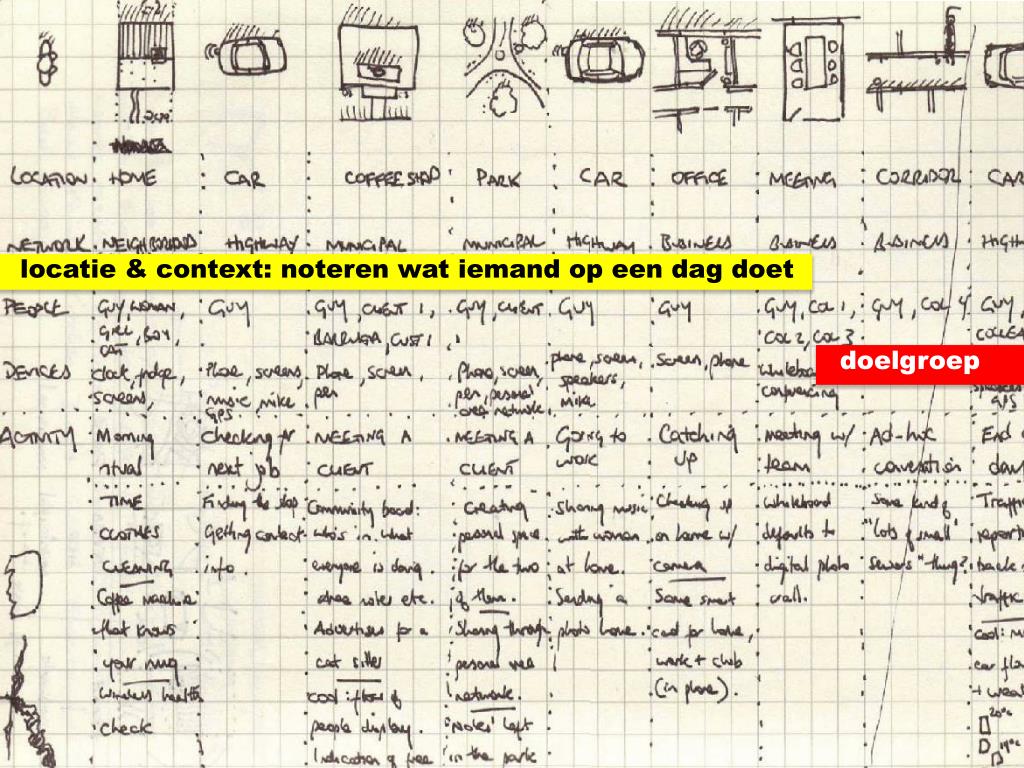 LOCATION HOME CAR COFFEE SHOP PARK CAR OFFICE MEETING CORRIDOR CAR
NETWORK NEIGHBORHOOD HIGHWAY MUNICIPAL MUNICIPAL HIGHWAY BUSINESS BUSINESS BUSINESS HIGH
locatie & context: noteren wat iemand op een dag doet
PEOPLE GUY, WOMAN, GUY GUY, CLIENT 1, GUY, CLIENT GUY GUY GUY, COL 1, GUY, COL 4 GUY,
GIRL, BOY, BARRISTA, CUST 1, COL 2, COL 3
CAT
doelgroep
DEVICES clock, fridge, Phone, screens, Phone, screen, Phone, screen, phone, screen, Screen, phone
screens, music, mike pen pen, personal speakers, conferencing
GPS area network. mike GPS
ACTIVITY Morning checking for MEETING A MEETING A Going to Catching meeting w/ Ad-hoc End
ritual next job CLIENT CLIENT work UP team conversation day
TIME Finding the shop Community board: Creating Sharing music Checking up Whiteboard Some kind of Traffic
CLOTHES Getting contact who's in, what personal space with woman on home w/ defaults to "lots of small report
CLEANING info. everyone is doing. for the two at home. camera digital photo sensors" thing?
Coffee machine area notes etc. of them. Sending a Some smart wall. traffic
that knows Advertises for a Sharing through photo home. card for home, cool:
your mug. cat sitter personal area work + club car
wireless health cool: flow of network. (in phone). +
check people display. Notes left 20°c
Indication of free in the park